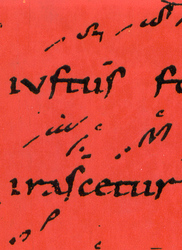 iuſtuſ
iraſcetur